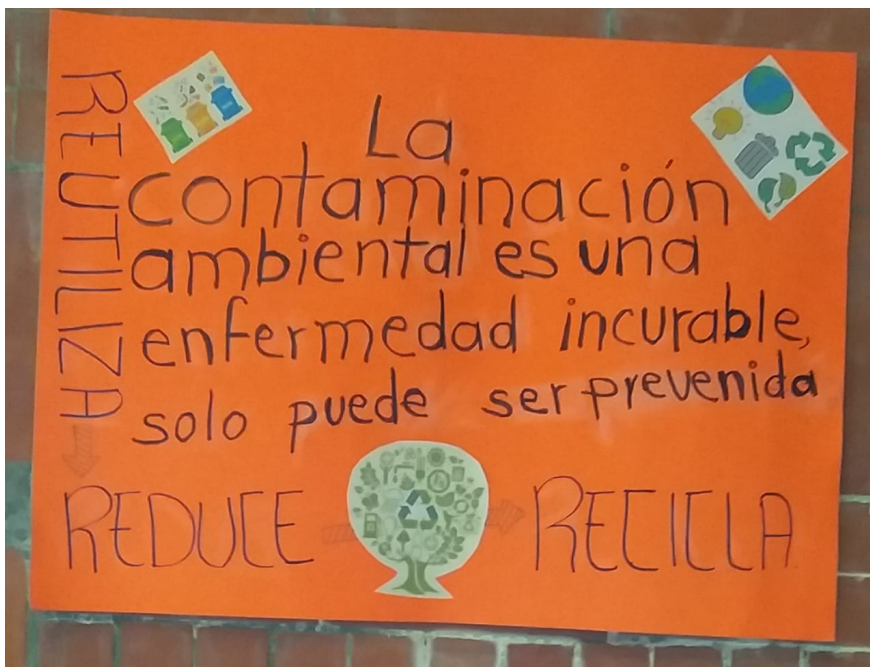 REUTILIZA
La
contaminación
ambiental es una
enfermedad incurable,
solo puede ser prevenida
REDUCE
RECICLA